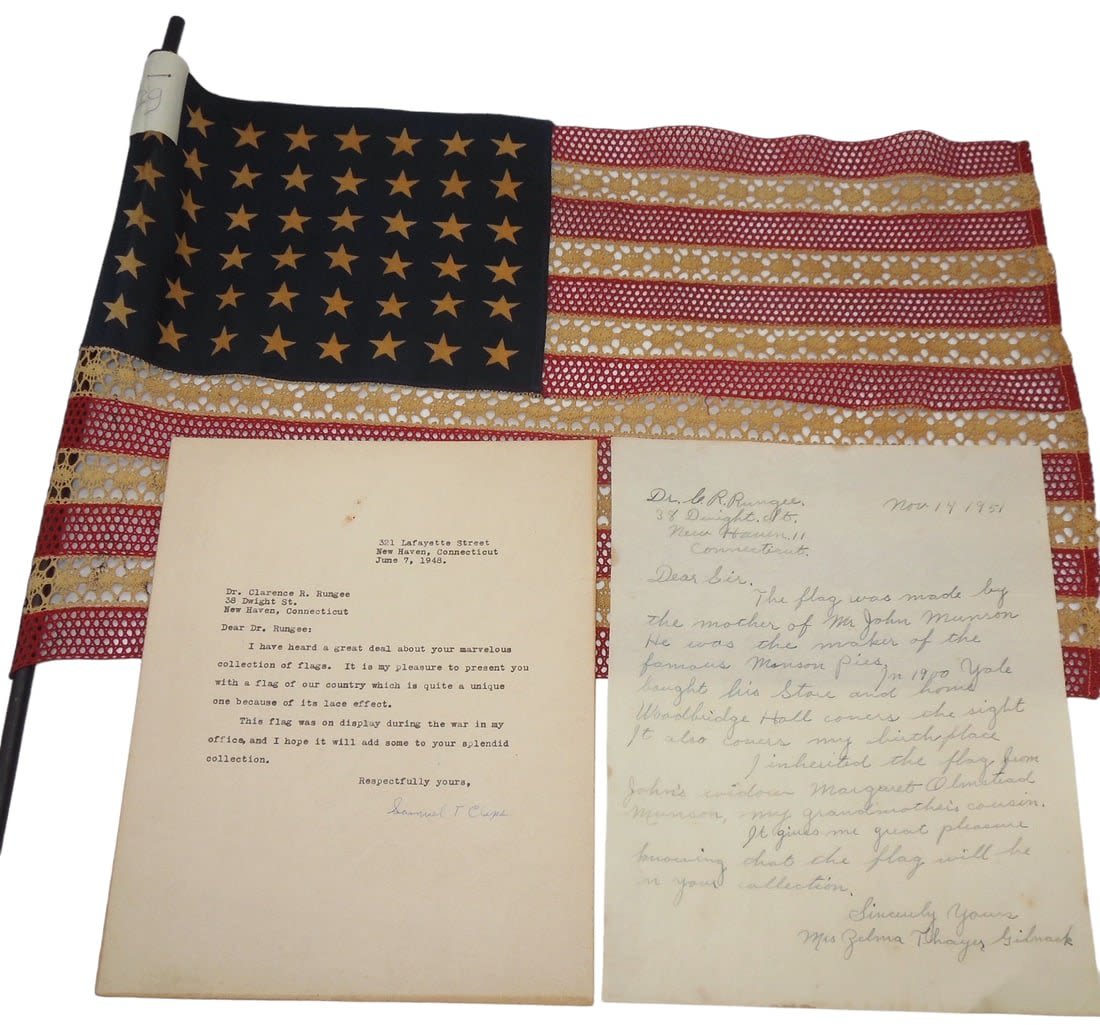 321 Lafayette Street
New Haven, Connecticut
June 7, 1948.
Dr. Clarence R. Rungee
38 Dwight St.
New Haven, Connecticut
Dear Dr. Rungee:
I have heard a great deal about your marvelous
collection of flags. It is my pleasure to present you
with a flag of our country which is quite a unique
one because of its lace effect.
This flag was on display during the war in my
office, and I hope it will add some to your splendid
collection.
Respectfully yours,
Samuel T
Dr. C. R. Rungee.
Nov 14 1951
38 Dwight. St.
New Haven 11
Connecticut.
Dear Sir.
The flag was made by
the mother of Mr John Munson
He was the maker of the
famous Monson pies.
In 1900 Yale
bought his Store and home
Woodbridge Hall covers the sight
It also covers my birthplace
I inherited the flag from
John's widow Margaret Olmstead
Munson, my grandmother's cousin.
It gives me great pleasure
knowing that the flag will be
in your collection.
Sincerely Yours
Mrs Zelma Thayer Gilnack